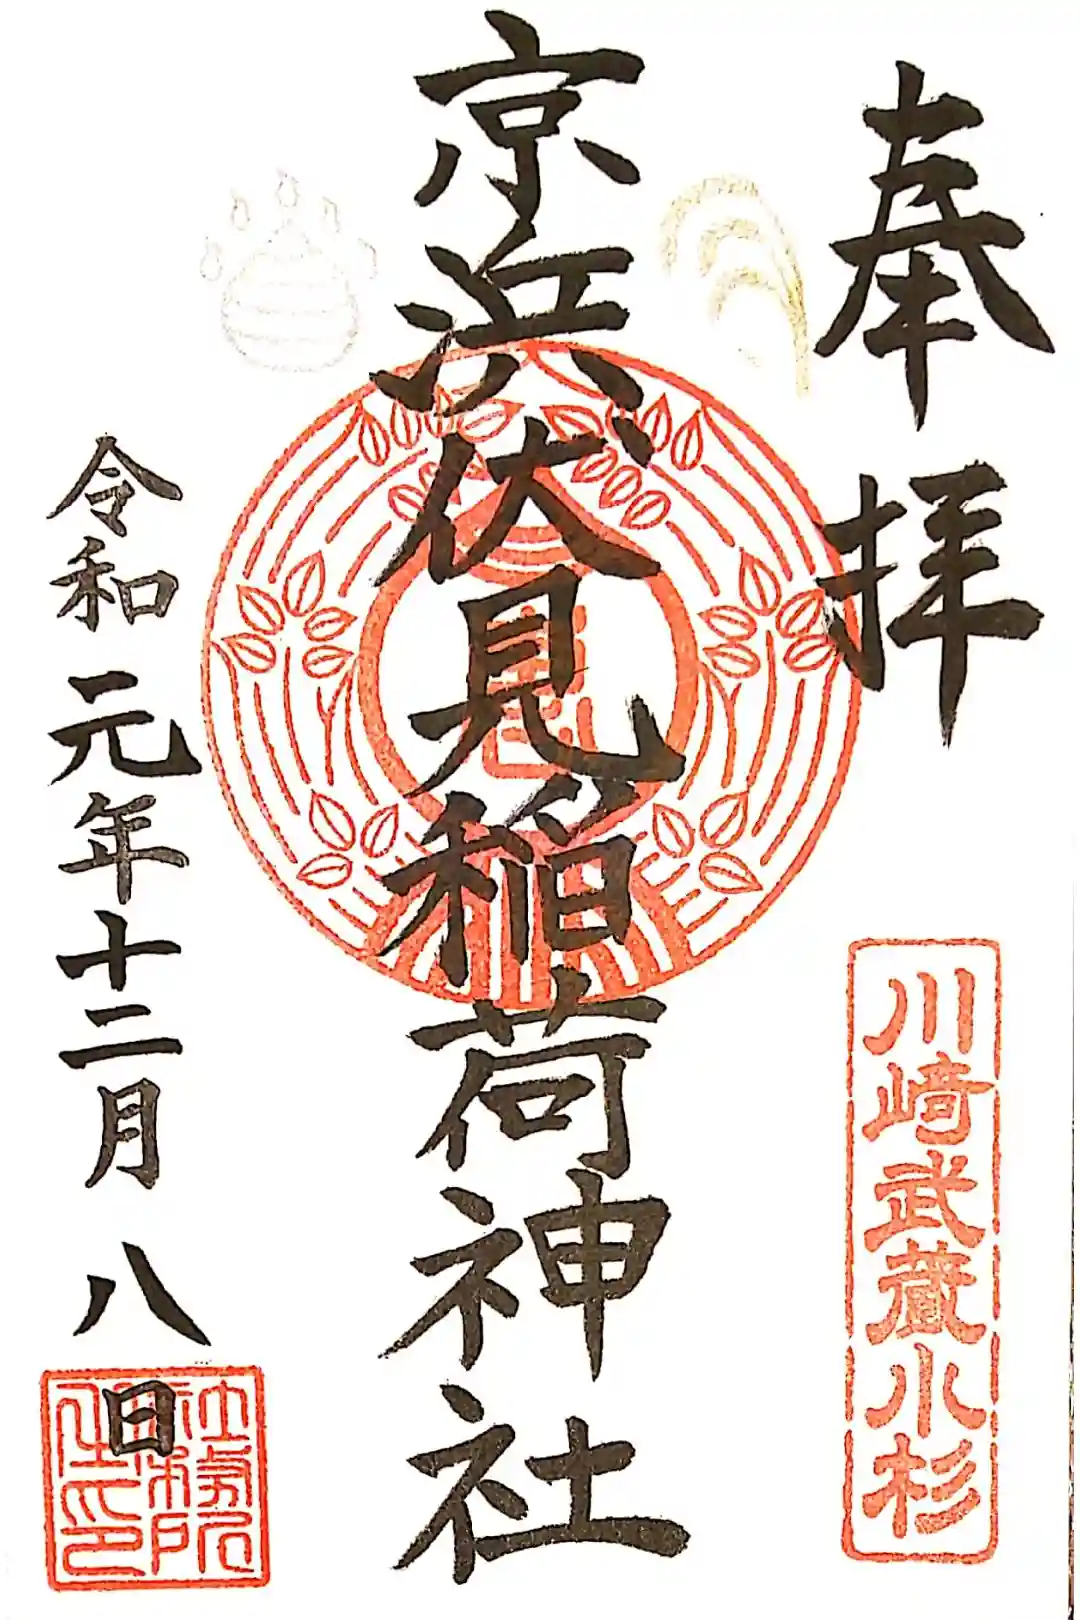 奉拝
川﨑武蔵小杉
京浜伏見稲荷神社
令和元年十二月八日